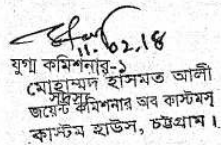 11.02.18
যুগ্ম কমিশনার-১
মোহাম্মদ হাসমত আলী
জয়েন্ট কমিশনার অব কাস্টমস
কাস্টম হাউস, চট্টগ্রাম।